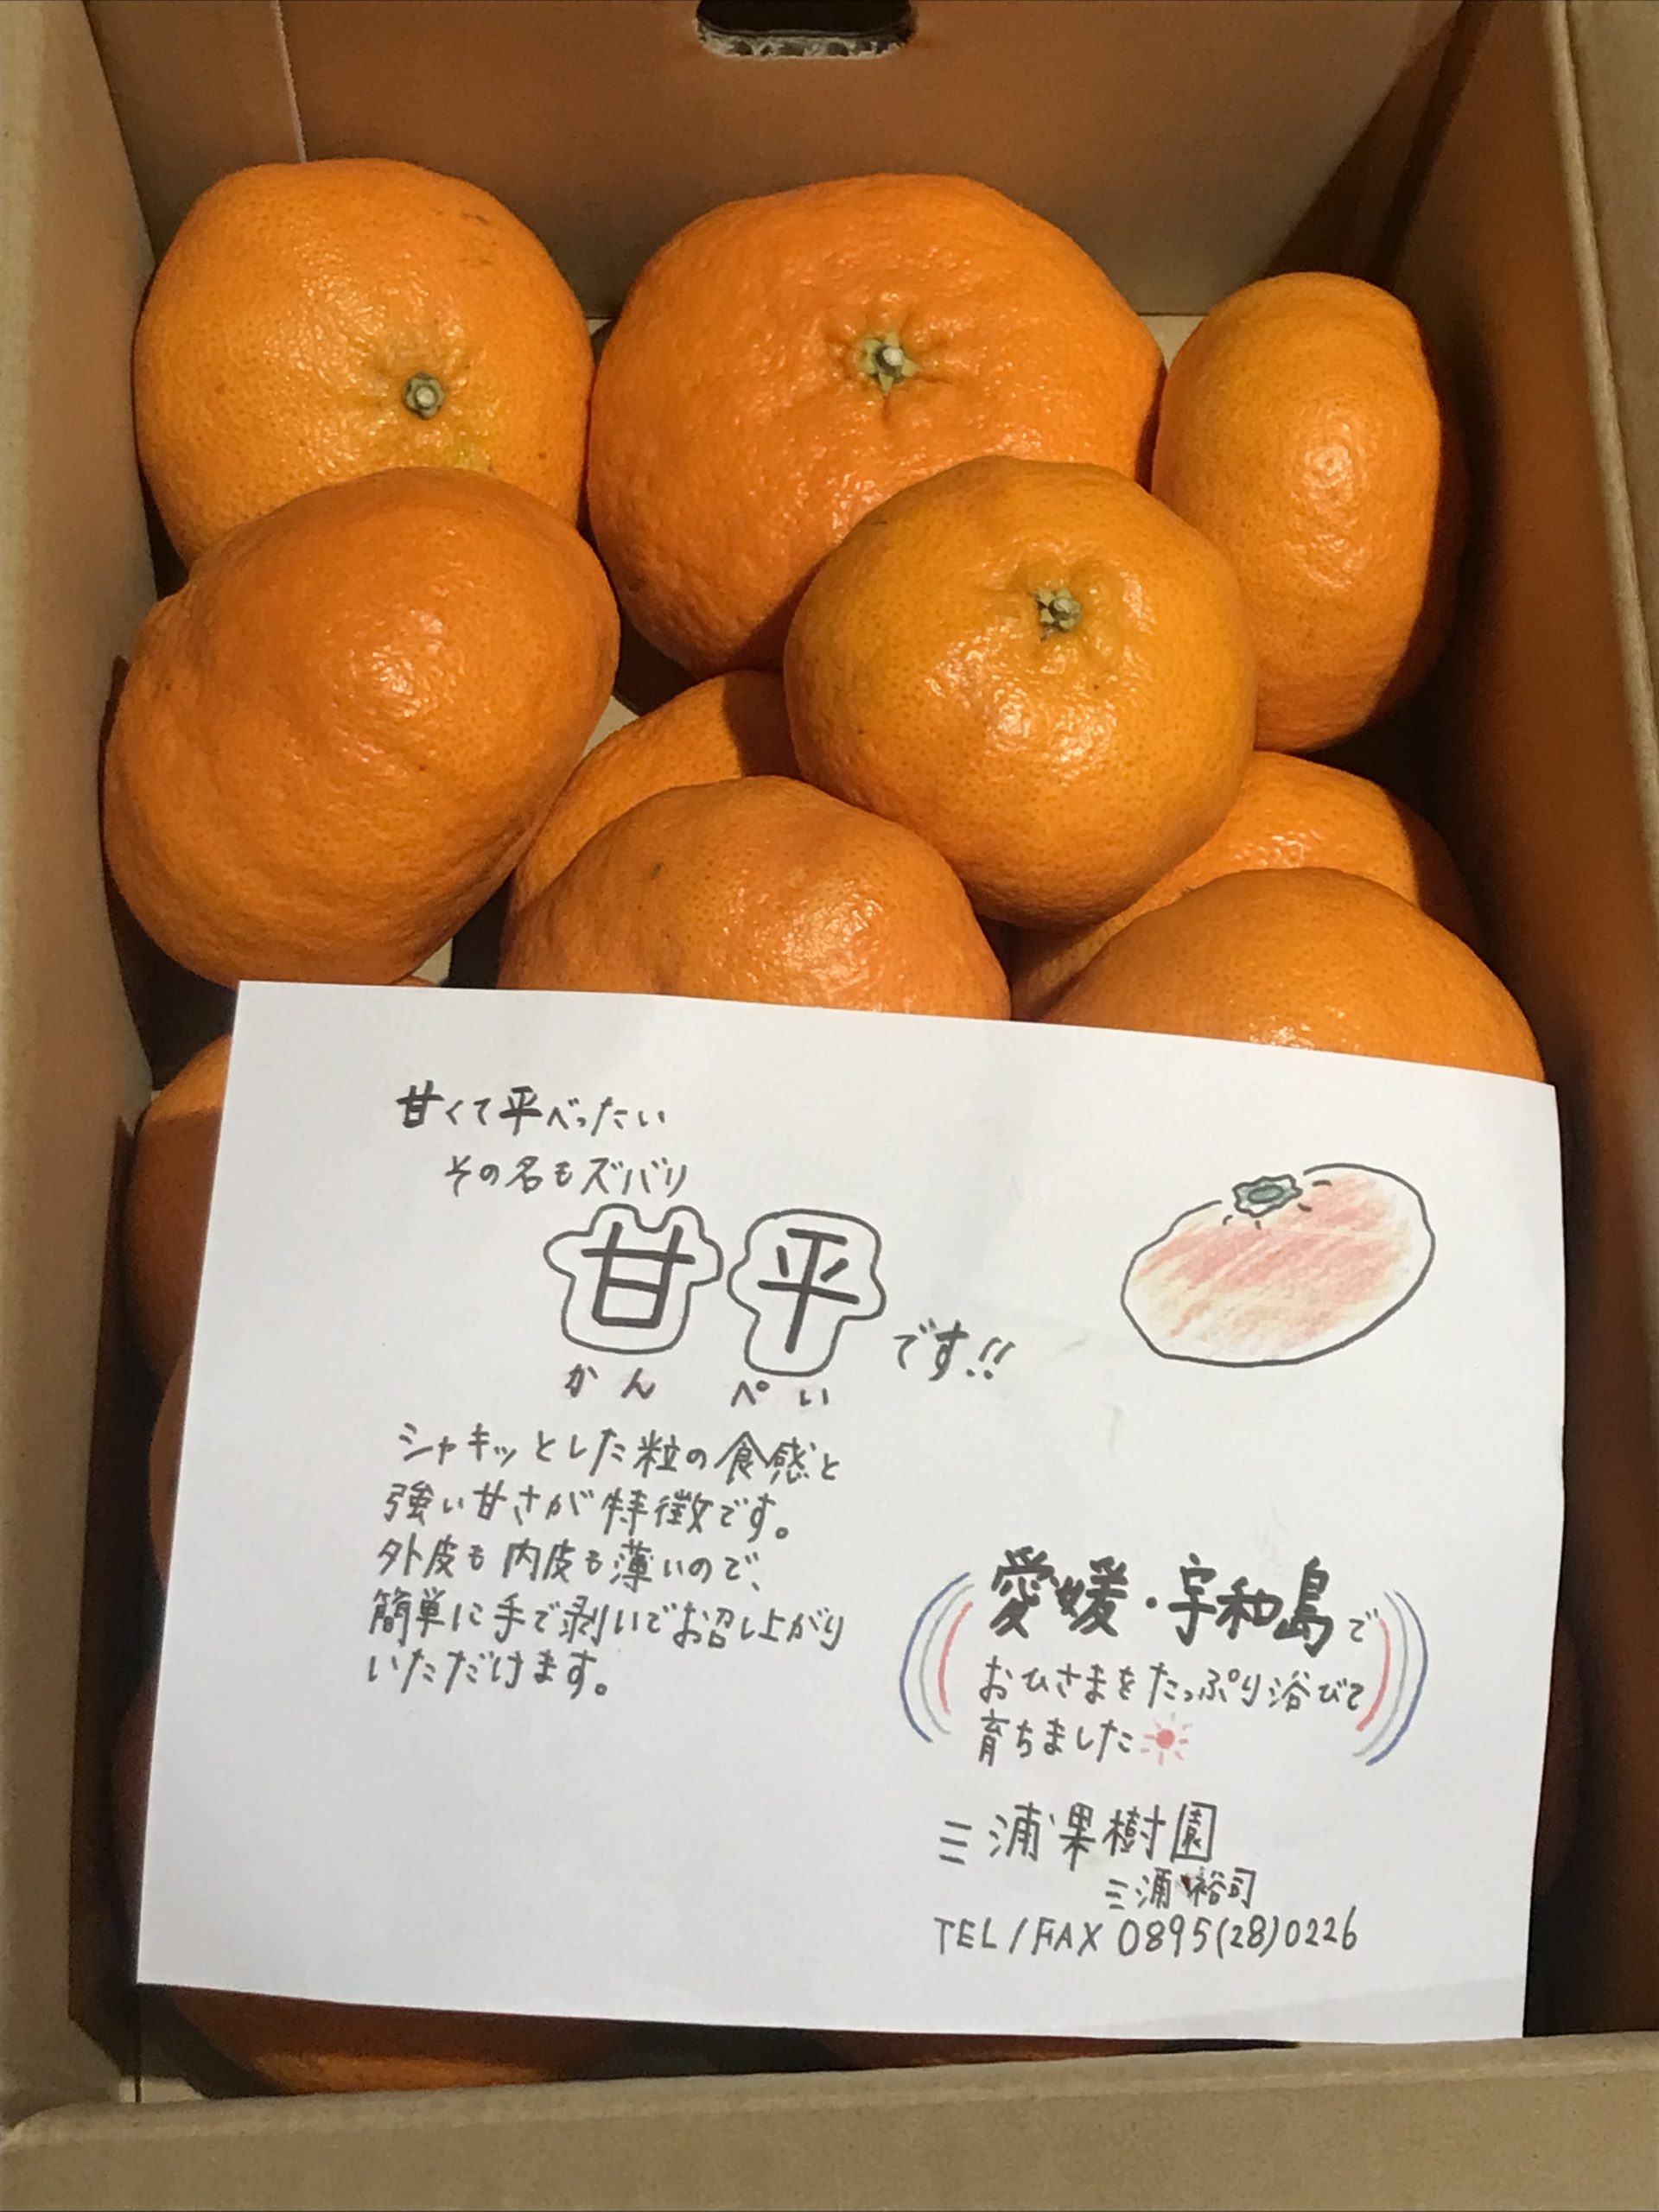 甘くて平べったい
その名もズバリ
甘平です!!
かんぺい
シャキッとした粒の食感と
強い甘さが特徴です。
外皮も内皮も薄いので、
簡単に手で剥いでお召し上がり
いただけます。
愛媛・宇和島で
おひさまをたっぷり浴びて
育ちました
三浦果樹園
三浦裕司
TEL/FAX 0895(28)0226